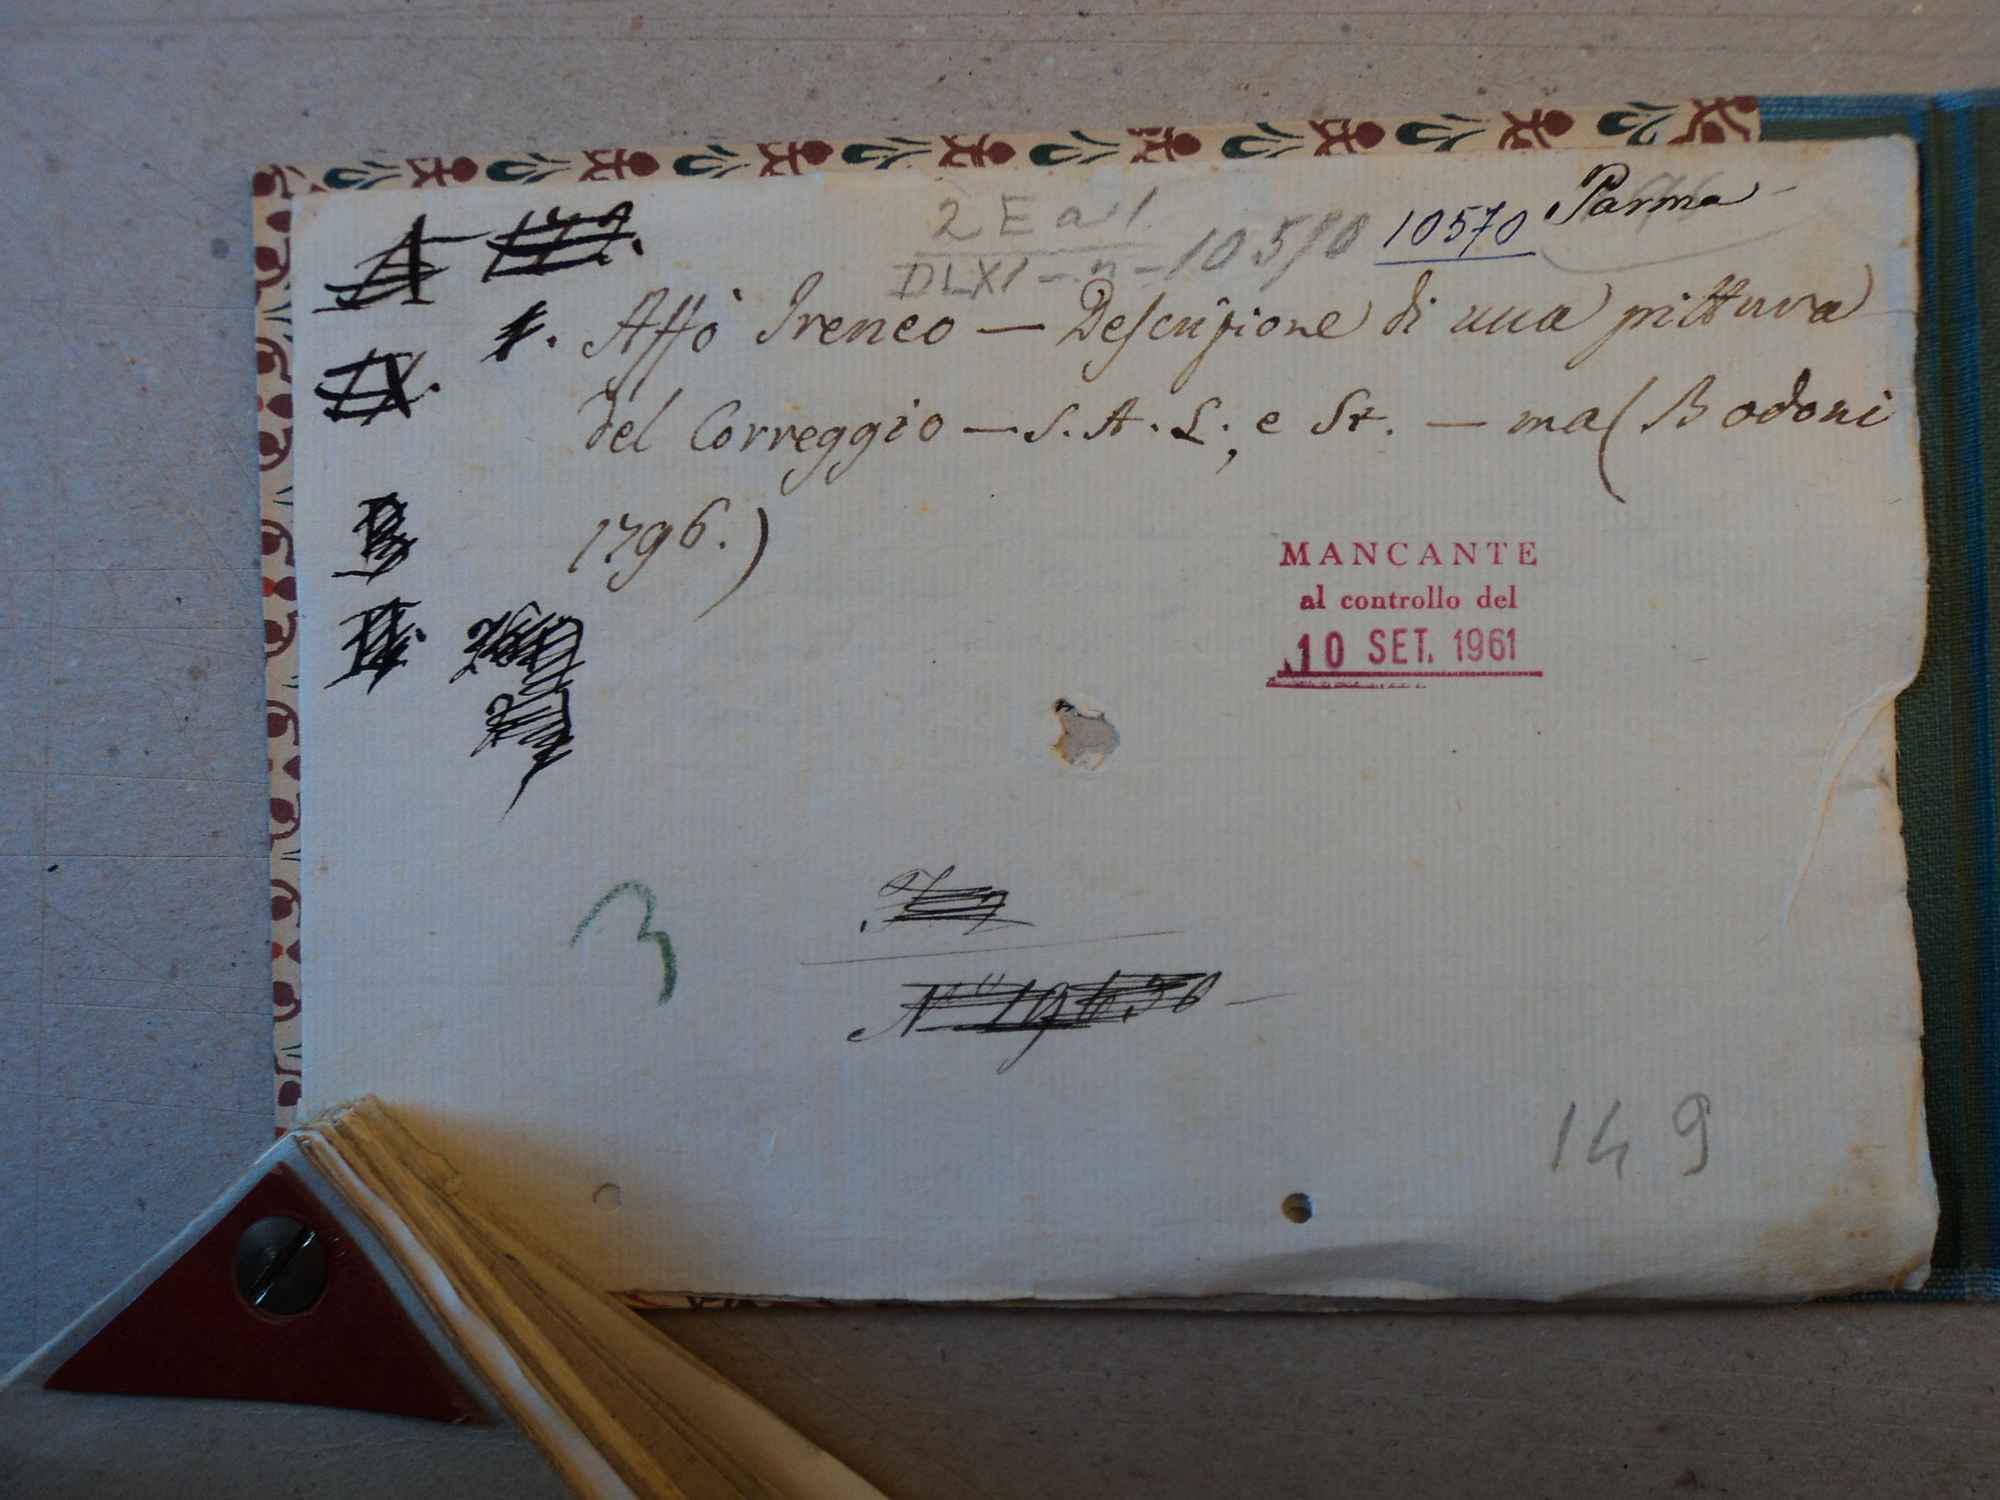 2 E a 1.
DLXI - n - 10570 10570 Parma
1. Affò Ireneo — Descrizione di una pittura
del Correggio — S. A. L., e St. — ma (Bodoni
1796.)
MANCANTE
al controllo del
10 SET. 1961
3
149